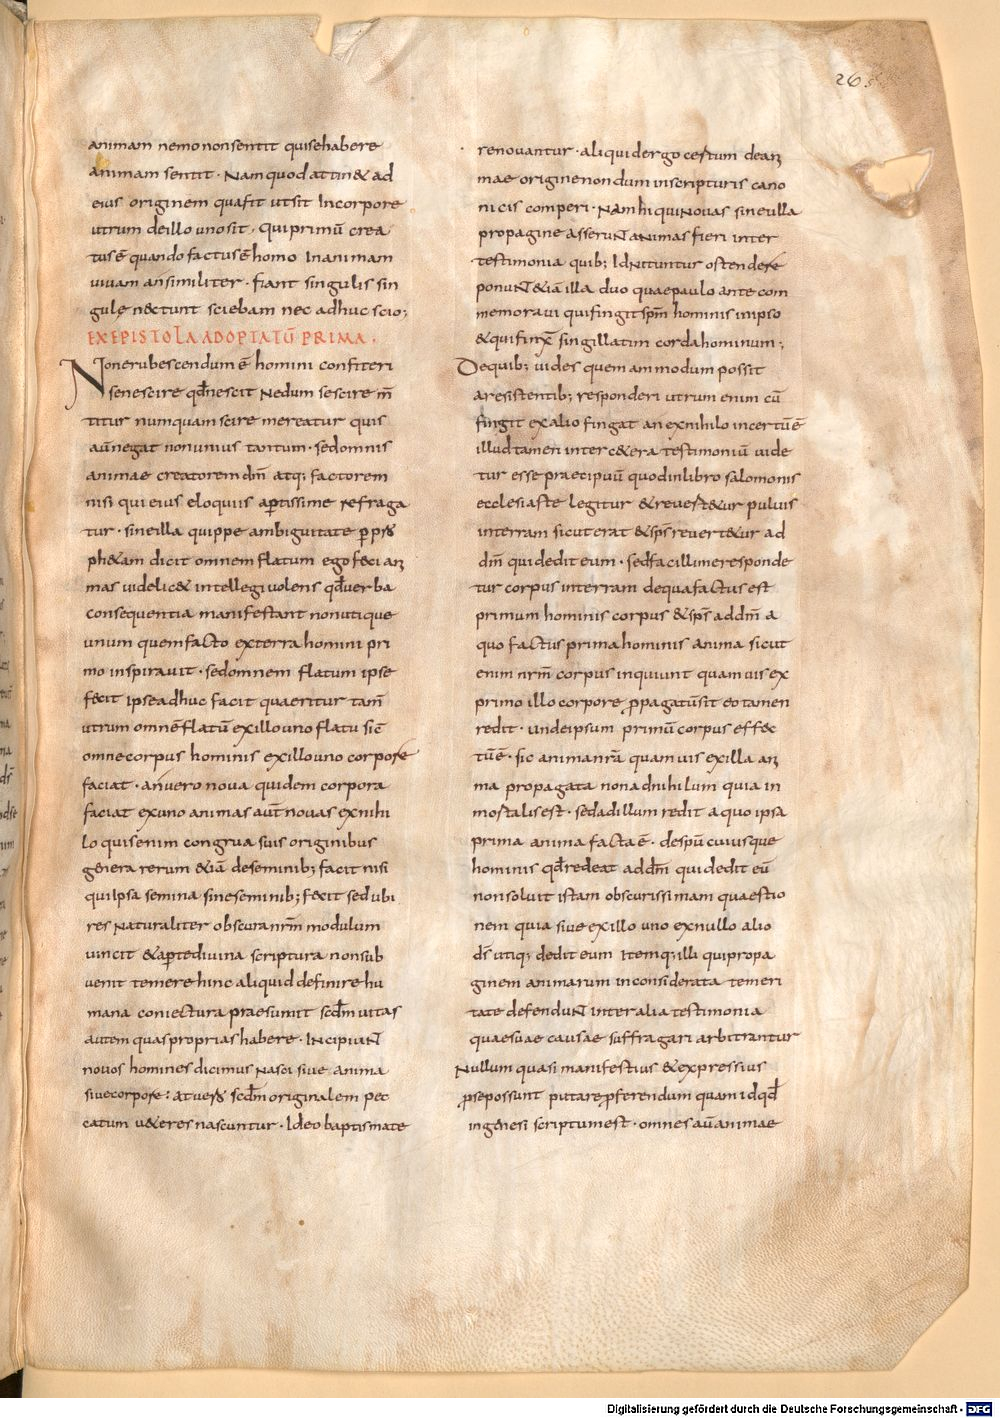 265
animam nemo non sentit qui se habere
animam sentit · Nam quod attin& ad
eius originem qua fit ut sit In corpore
utrum de illo uno sit · qui primū crea
tus ē quando factus ē homo In animam
vivam an similiter · fiant singulis sin
gulę nectunt sciebam nec adhuc scio;
EX EPISTOLA AD OPTATŪ PRIMA ·
Non erubescendum ē homini confiteri
se nescire qd̄ nescit Ne dum se scire m̄
titur numquam scire mereatur quis
aūt negat non unius tantum · sed omnis
animae creatorem dm̄ atq; factorem
nisi qui eius eloquiis ap̄tissime refraga
tur · sine illa quippe ambiguitate p̄ p̄
ph&am dicit omnem flatum ego feci an
mas videlic& intellegi volens qd̄ verba
consequentia manifestant non utique
unum quem facto ex terra homini pri
mo inspiravit · sed omnem flatum ipse
fecit ipse adhuc facit quaeritur tam̄
utrum omnē flatū ex illo uno flatu sic̄
omne corpus hominis ex illo uno corpore
faciat · an vero nova quidem corpora
faciat ex uno animas aut̄ novas ex nihi
lo quis enim congrua suis originibus
genera rerum &iā de seminib; facit nisi
qui Ipsa semina sine seminib; fecit sed ubi
res Naturaliter obscura nr̄m modulum
vincit & ap̄te divina scriptura non sub
venit temere hinc aliquid definire hu
mana coniectura praesumit scd̄m vitas
autem quas proprias habere · INcipiuNt
novos homines dicimus Nasci sive anima
sive corpore: at vero scd̄m originalem pec
catum v&eres nascuntur · Ideo baptismate
renovantur · aliquid ergo certum de an
mae origine nondum in scripturis cano
nicis comperi · Nam hi qui Novas sine ulla
propagine asseruNt aNimas fieri inter
testimonia quib; Id Nituntur ostendere
ponuNt &iā illa duo quae paulo ante com
memoravi qui fingit sp̄m hominis in ipso
& qui finx̄ singillatim corda hominum;
De quib; vides quem ammodum possit
a resistentib; responderi utrum enim cū
fingit ex alio fingat an ex nihilo incertū ē
illud tamen inter c&era testimoniū vide
tur esse praecipuū quod in libro salomonis
ecclesiaste legitur & revert&ur pulvis
in terram sicut erat & sp̄s revert&ur ad
dm̄ qui dedit eum · sed facillime responde
tur corpus in terram de qua factus est
primum hominis corpus & sp̄s ad dm̄ a
quo factus prima hominis anima sicut
enim nr̄m corpus inquiunt quamvis ex
primo illo corpore p̄pagatū sit eo tamen
redit · unde ipsum primū corpus effec
tū ē · sic anima nr̄a quamvis ex illa an
ma propagata non ad nihilum quia in
mortalis est · sed ad illum redit a quo ipsa
prima anima facta ē · de sp̄u cuiusque
hominis qd̄ redeat ad dm̄ qui dedit eū
non solvit istam obscurissimam quaestio
nem quia sive ex illo uno ex nullo alio
ds̄ utiq; dedit eum Itemq; illi qui propa
ginem animarum inconsiderata temeri
tate defenduNt inter alia testimonia
quae suae causae suffragari arbitrantur
Nullum quasi manifestius & expressius
p̄ se possunt putare p̄ferendum quam id qd̄
in genesi scriptum est · omnes aū animae
Digitalisierung gefördert durch die Deutsche Forschungsgemeinschaft · DFG